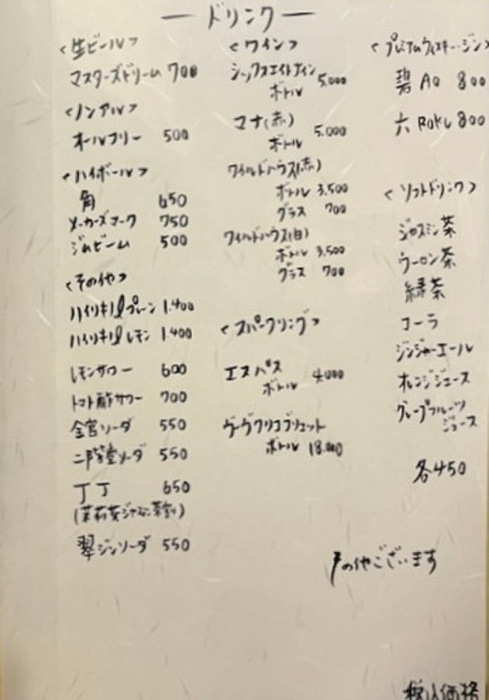 ードリンクー
<生ビール>
マスターズドリーム 700
<ノンアル>
オールフリー 500
<ハイボール>
角 650
メーカーズマーク 750
ジムビーム 500
<その他>
ハイリキ1ℓプレーン 1.400
ハイリキ1ℓレモン 1.400
レモンサワー 600
トマト酢サワー 700
金宮ソーダ 550
二階堂ソーダ 550
丁丁 650
(茉莉花ジャスミン茶割り)
翠ジンソーダ 550
<ワイン>
シックスエイトナイン
ボトル 5.000
マナ(赤)
ボトル 5.000
ワイルドハウス(赤)
ボトル 3.500
グラス 700
ワイルドハウス(白)
ボトル 3.500
グラス 700
<スパークリング>
エスパス
ボトル 4.000
ヴーヴクリコブリュット
ボトル 18.000
<プレミアムウィスキー・ジン>
碧 AO 800
六 ROKU 800
<ソフトドリンク>
ジャスミン茶
ウーロン茶
緑茶
コーラ
ジンジャーエール
オレンジジュース
グレープフルーツ
ジュース
各450
その他ございます
税込価格